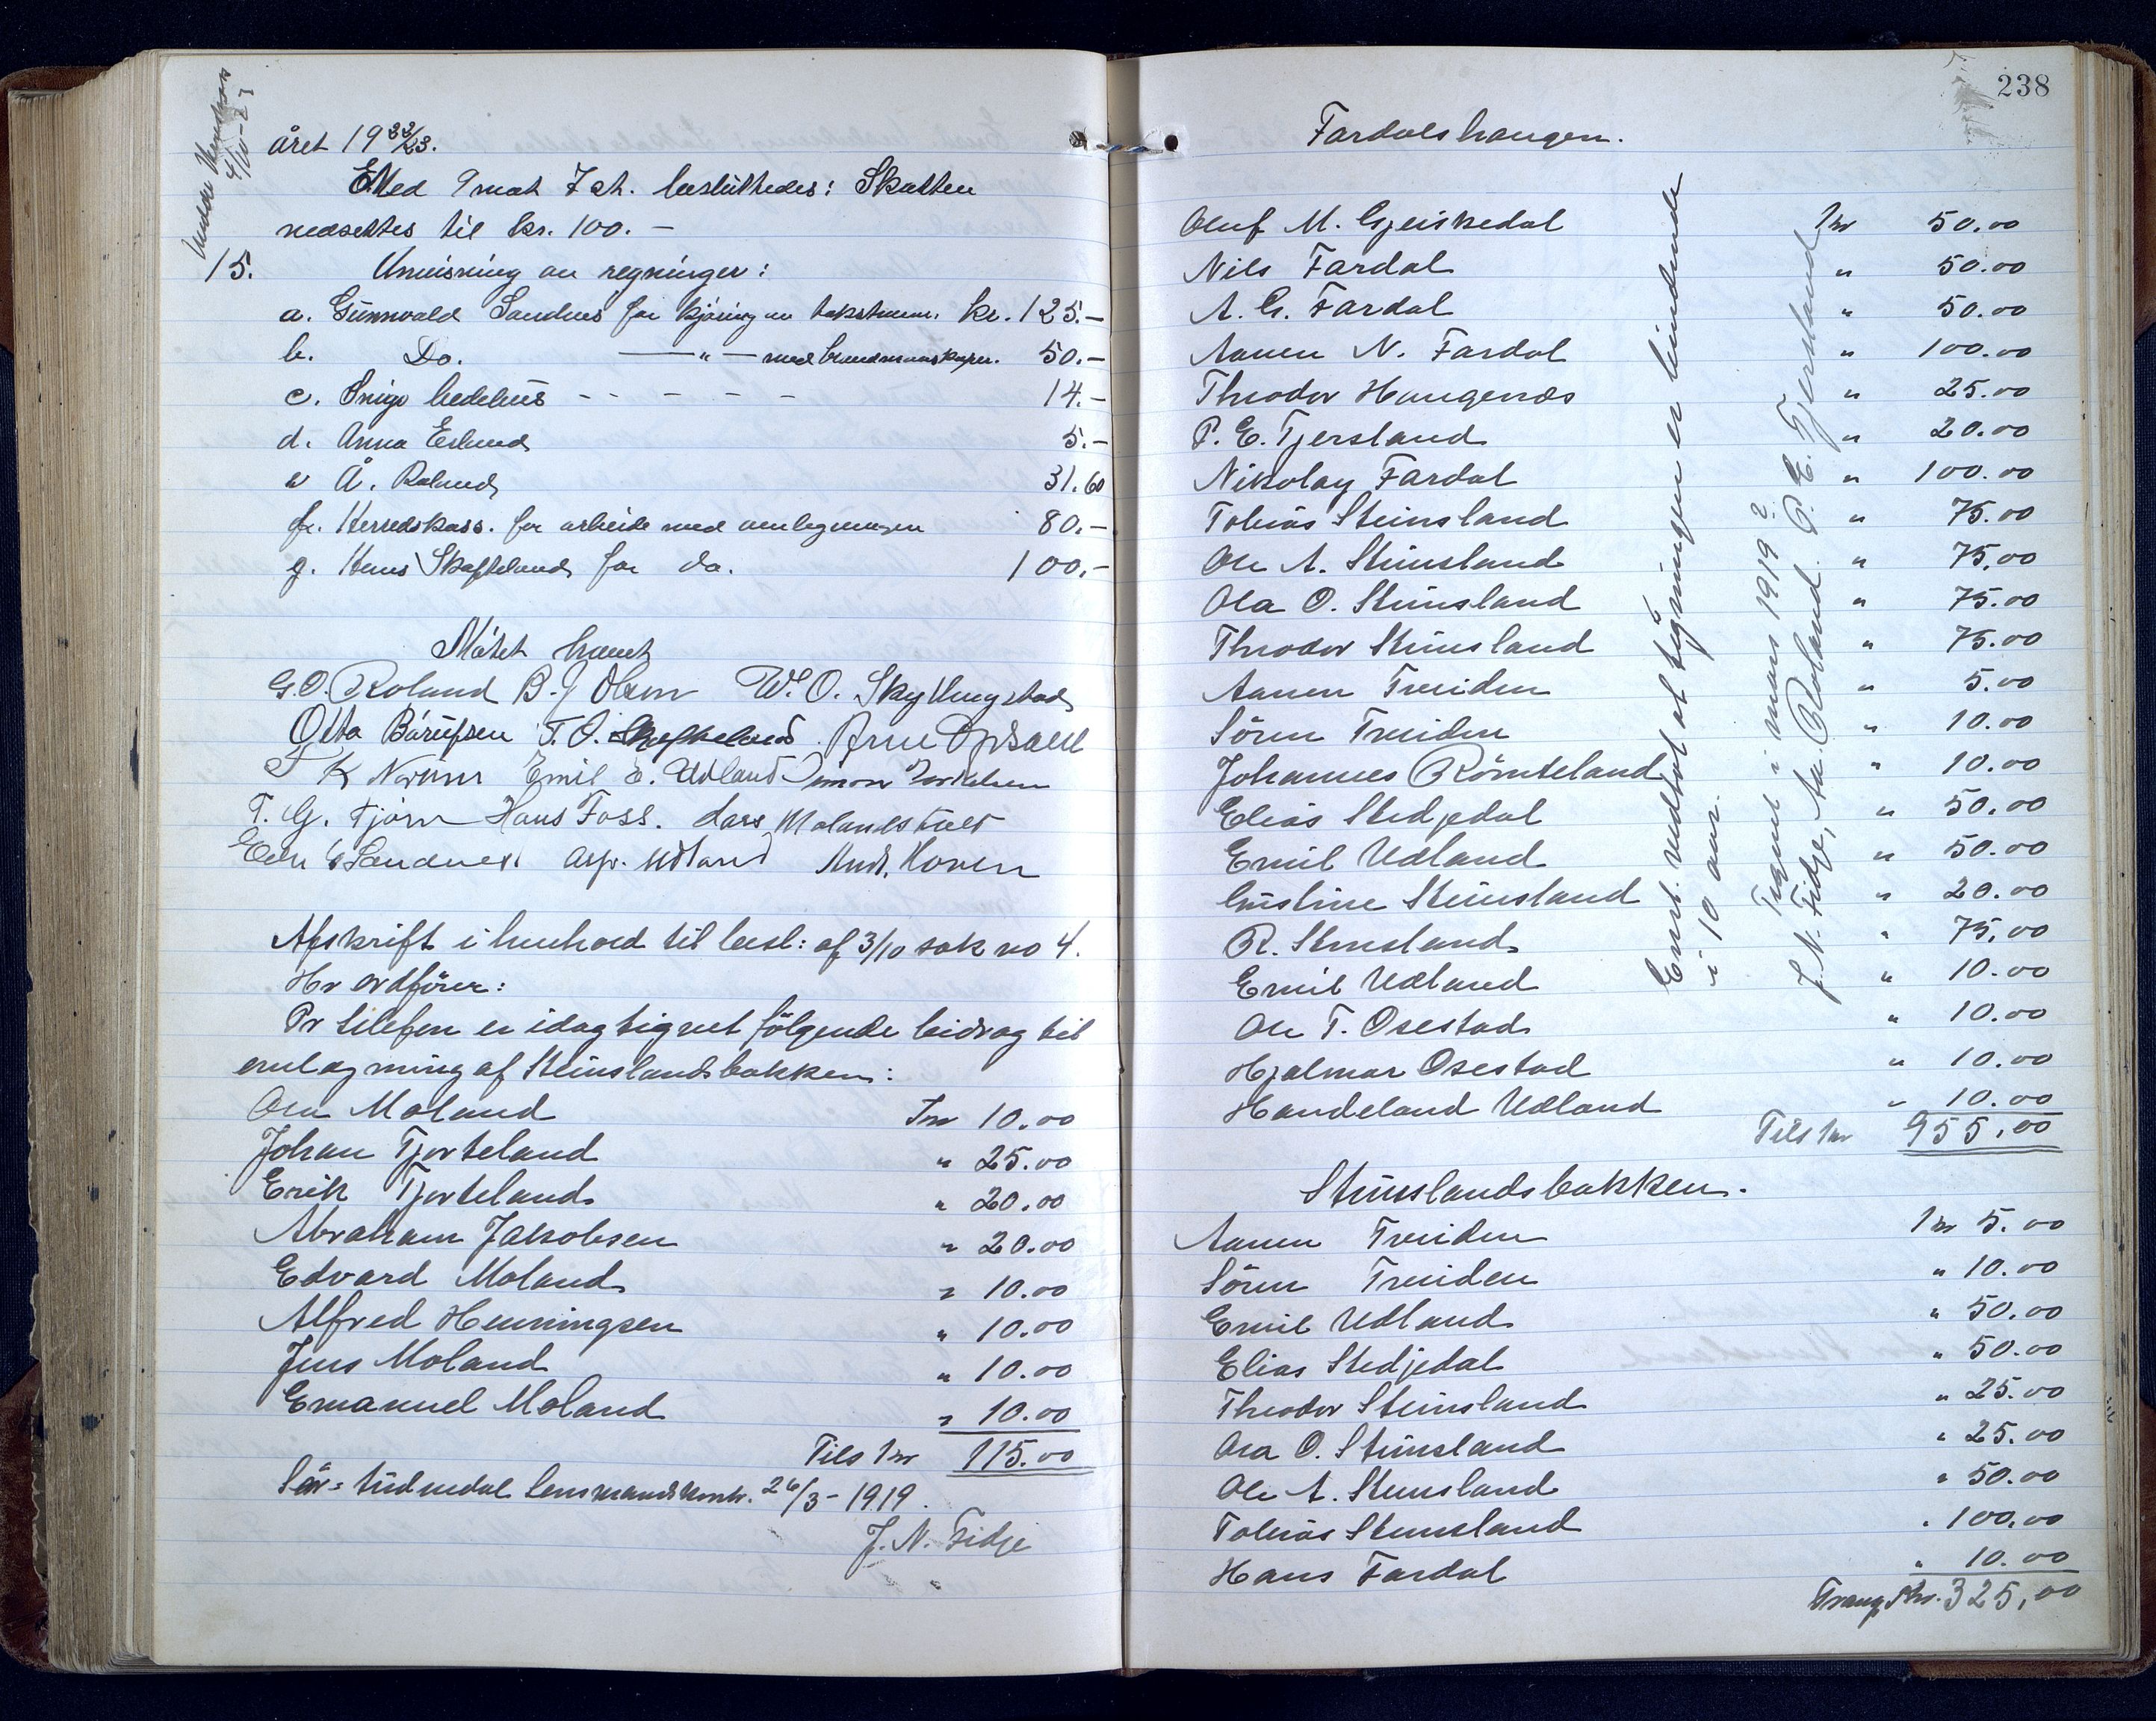 4/10-23
året 19 22/23.
Med 9 mot 7 st. besluttedes: Skatten
nedsettes til kr. 100.-
15. Anvisning av regninger:
a. Gunnvald Sandnes for kjøring av kr. 125.-
b. Do. —"— med brandmannskaper. 50.-
c. bedehus - - - - - 14.-
d. Anna Eslund 5.-
e Å. Roland 31.60
f. Herredskass. for arbeide med omlegningen 80.-
g. Hans Skafteland for do. 100.-
Møtet hævet
G. O. Roland B. J. Olsen W. O. Skyllingstad
Otto Bårufsen T. O. Skafteland. Arne Opsahl
T K Nerums Emil E. Udland Simon Torkelsen
T. G. Tjørn Hans Foss. Lars Molandskied
E Sandnes. Asp. Udland And. Hoven
Afskrift i henhold til besl: af 3/10 sak no 4.
Hr ordfører:
Pr telefon er idag tignet følgende bidrag til
omlægning af Steinslandsbakken:
Moland Kr 10.00
Johan Tjorteland " 25.00
Erik Tjorteland " 20.00
Abraham Jakobsen " 20.00
Edvard Moland " 10.00
Alfred Henningsen " 10.00
Jens Moland " 10.00
Emanuel Moland " 10.00
Tils kr 115.00
Sør-Audnedal lensmandskontr. 26/3-1919.
J. N. Fidje
238
Fardalshaugen.
Oluf M. Gjeiskedal kr 50.00
Nils Fardal " 50.00
A. G. Fardal " 50.00
Aanen N. Fardal " 100.00
Theodor Haugenæs " 25.00
P. E. Tjersland " 20.00
Nikolay Fardal " 100.00
Tobias Steinsland " 75.00
Ole A. Steinsland " 75.00
Ola O. Steinsland " 75.00
Theodor Steinsland " 75.00
Aanen Treiden " 5.00
Søren Treiden " 10.00
Johannes Rømteland " 10.00
Elias Stedjedal " 50.00
Emil Udland " 50.00
Gustine Steinsland " 20.00
R. Steinsland " 75.00
Emil Udland " 10.00
Ole T. Osestad " 10.00
Hjalmar Osestad " 10.00
Handeland Udland " 10.00
Tils kr 955.00
Enst. vedtat at tegningen er bindende
i 10 aar.
Tegnet i mars 1919?
J. N. Fidje, Aa. Roland. P. E. Tjersland
Steinslandsbakken.
Aanen Treiden kr 5.00
Søren Treiden " 10.00
Emil Udland " 50.00
Elias Stedjedal " 50.00
Theodor Steinsland " 25.00
Ola O. Steinsland " 25.00
Ole A. Steinsland " 50.00
Tobias Steinsland " 100.00
Hans Fardal " 10.00
Transp. kr. 325,00